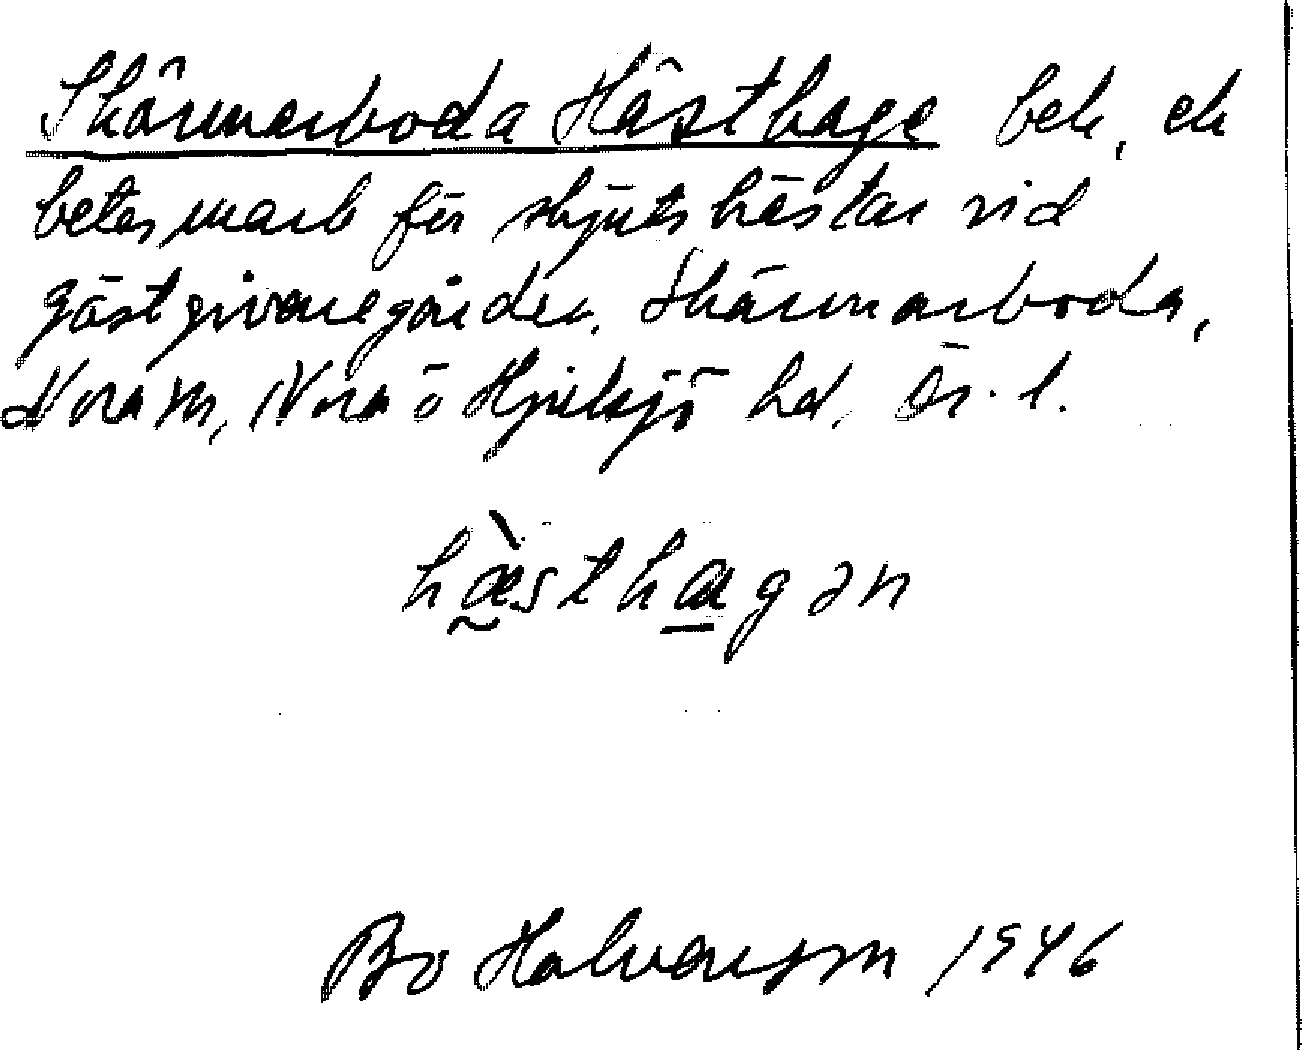 Skärmarboda Hästhage bek, ek
betesmark för skjutshästar vid
gästgivaregården. Skärmarboda,
Nora sn, Nora o Hjulsjö hd, Ör. l.
hæ̀sthagən
Bo Halvarsson 1946